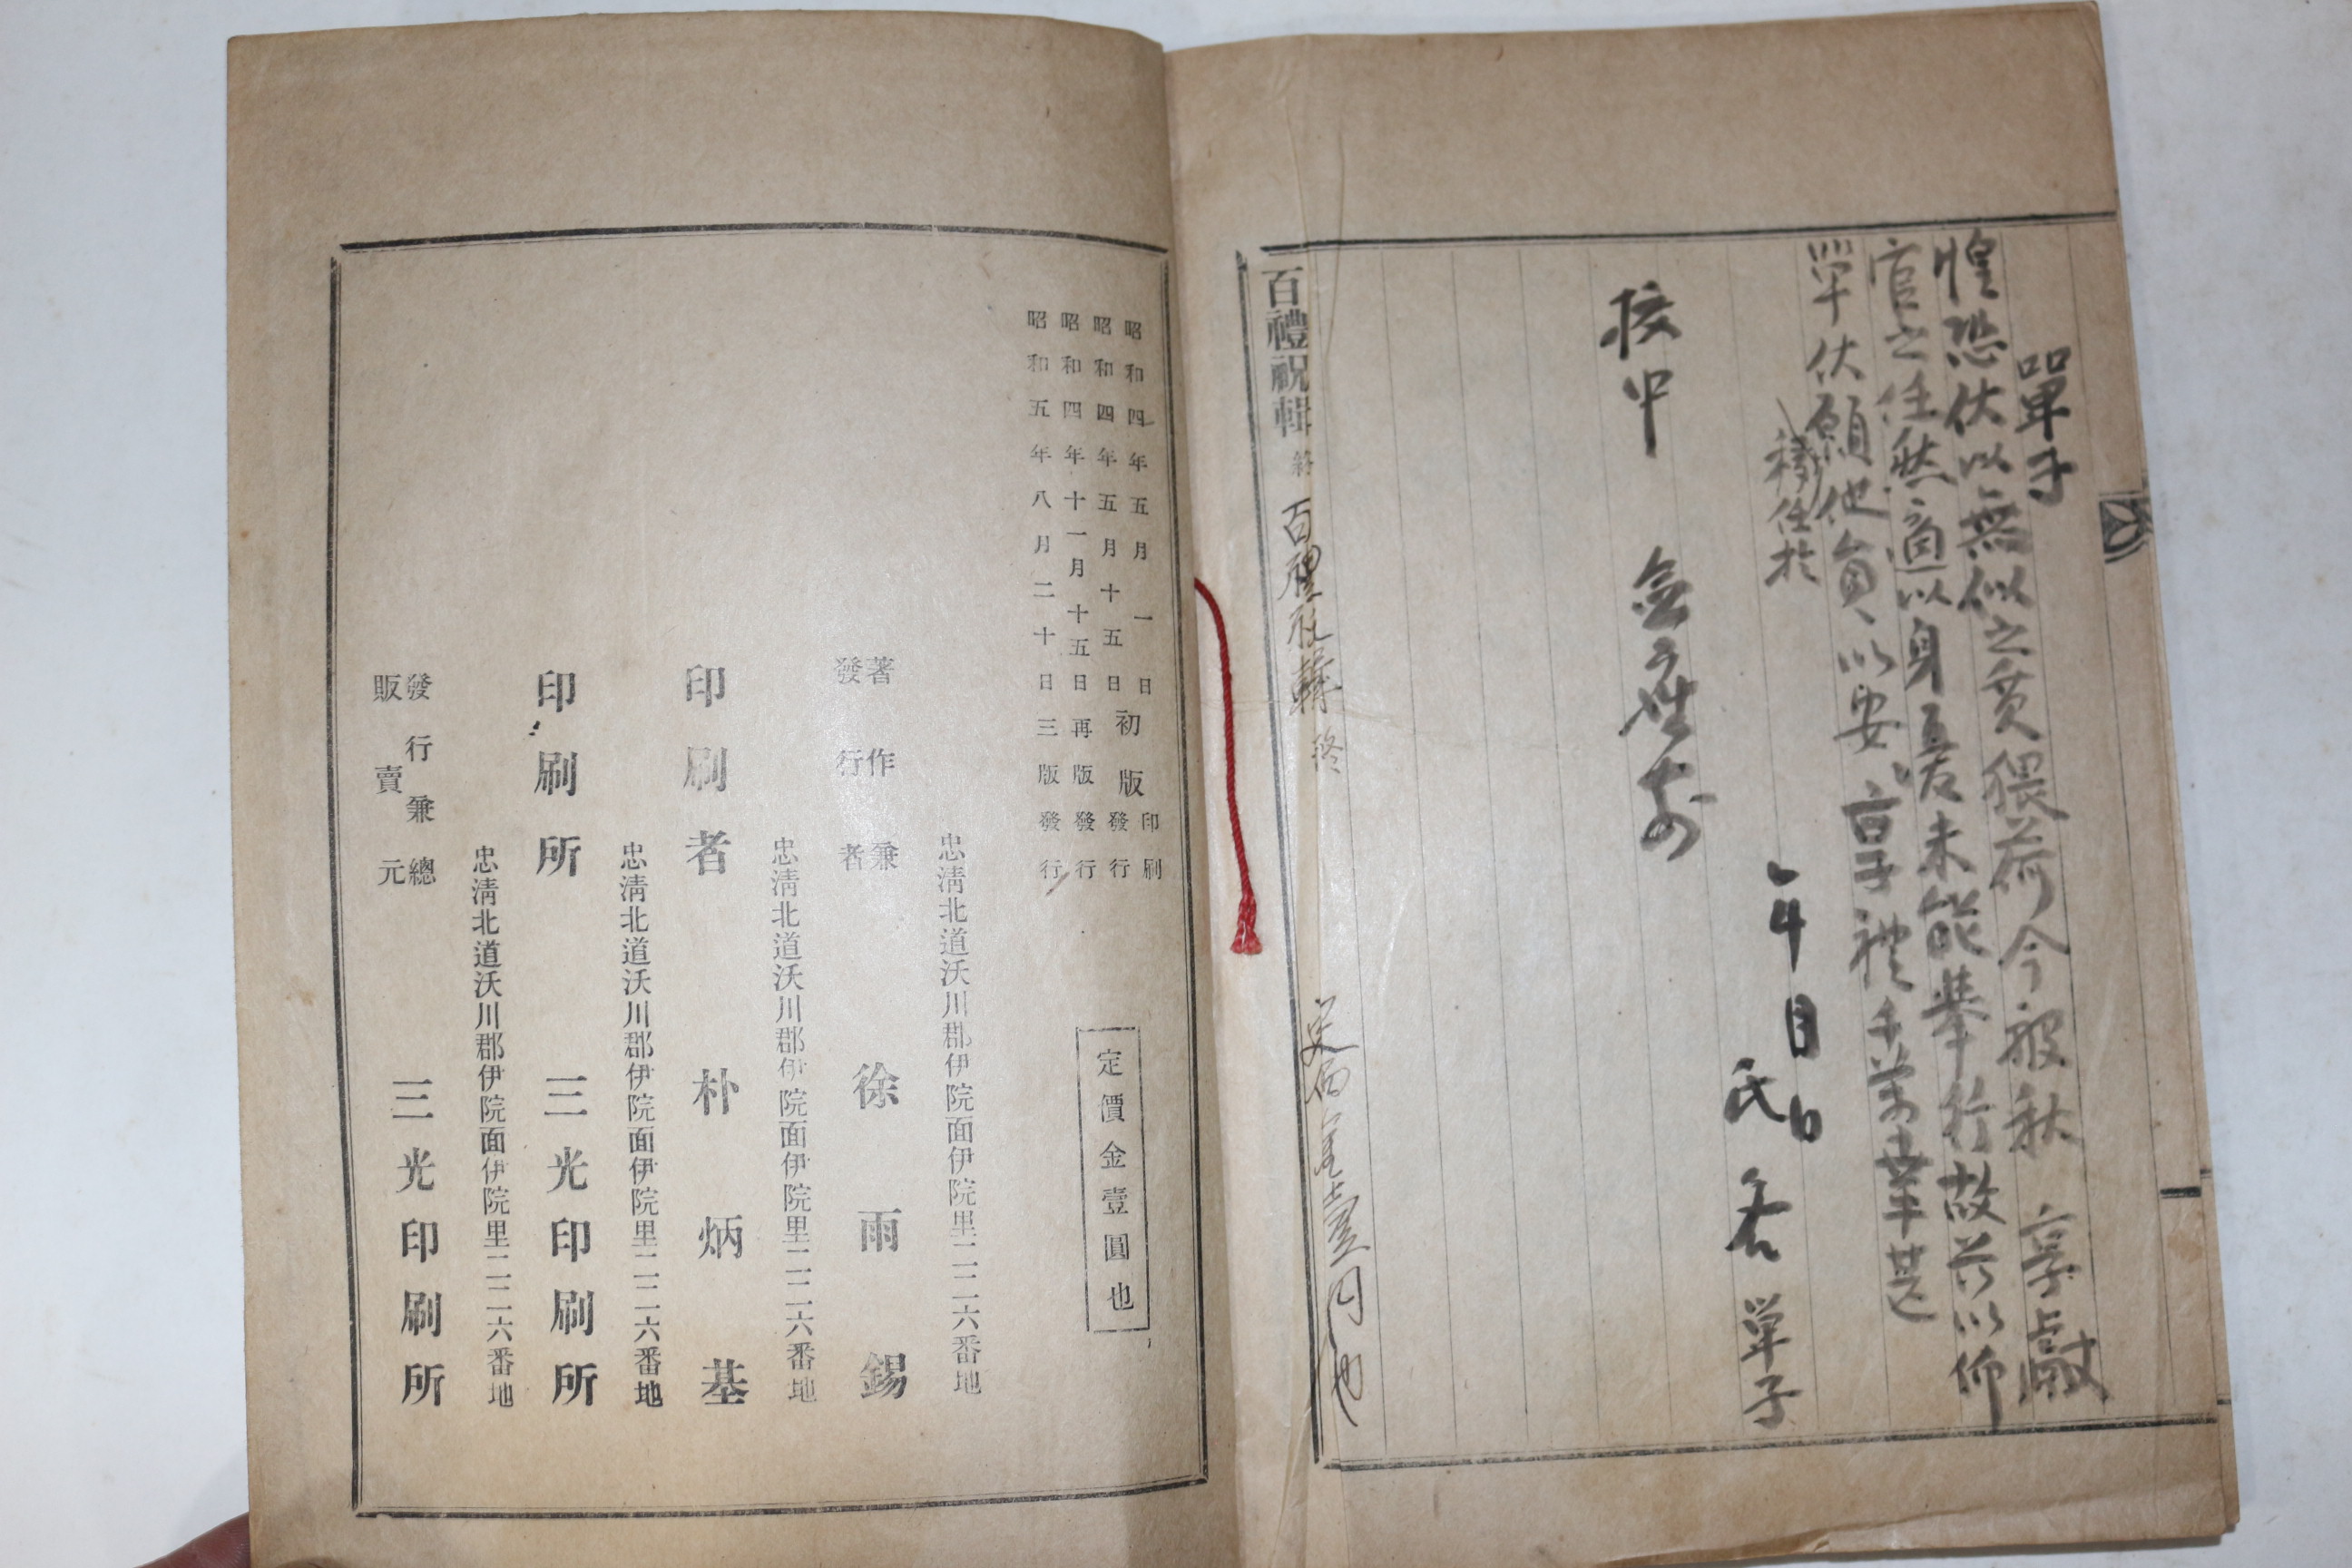 單子
惶恐伏以無似之質猥荷今般秋 享獻
官之任然適以身恙未能擧行故玆以仰
單伏願他員以安 享禮千萬幸甚
移任於
年 月 日
氏 名 單子
校中 僉座前
百禮祝輯 終
百禮祝輯 終
定価金壹円也
昭和四年五月一日印刷
昭和四年五月十五日初版發行
昭和四年十一月十五日再版發行
昭和五年八月二十日三版發行
定價金壹圓也
忠淸北道沃川郡伊院面伊院里二二六番地
著作兼發行者 徐雨錫
忠淸北道沃川郡伊院面伊院里二二六番地
印刷者 朴炳基
忠淸北道沃川郡伊院面伊院里二二六番地
印刷所 三光印刷所
忠淸北道沃川郡伊院面伊院里二二六番地
發行兼總販賣元 三光印刷所